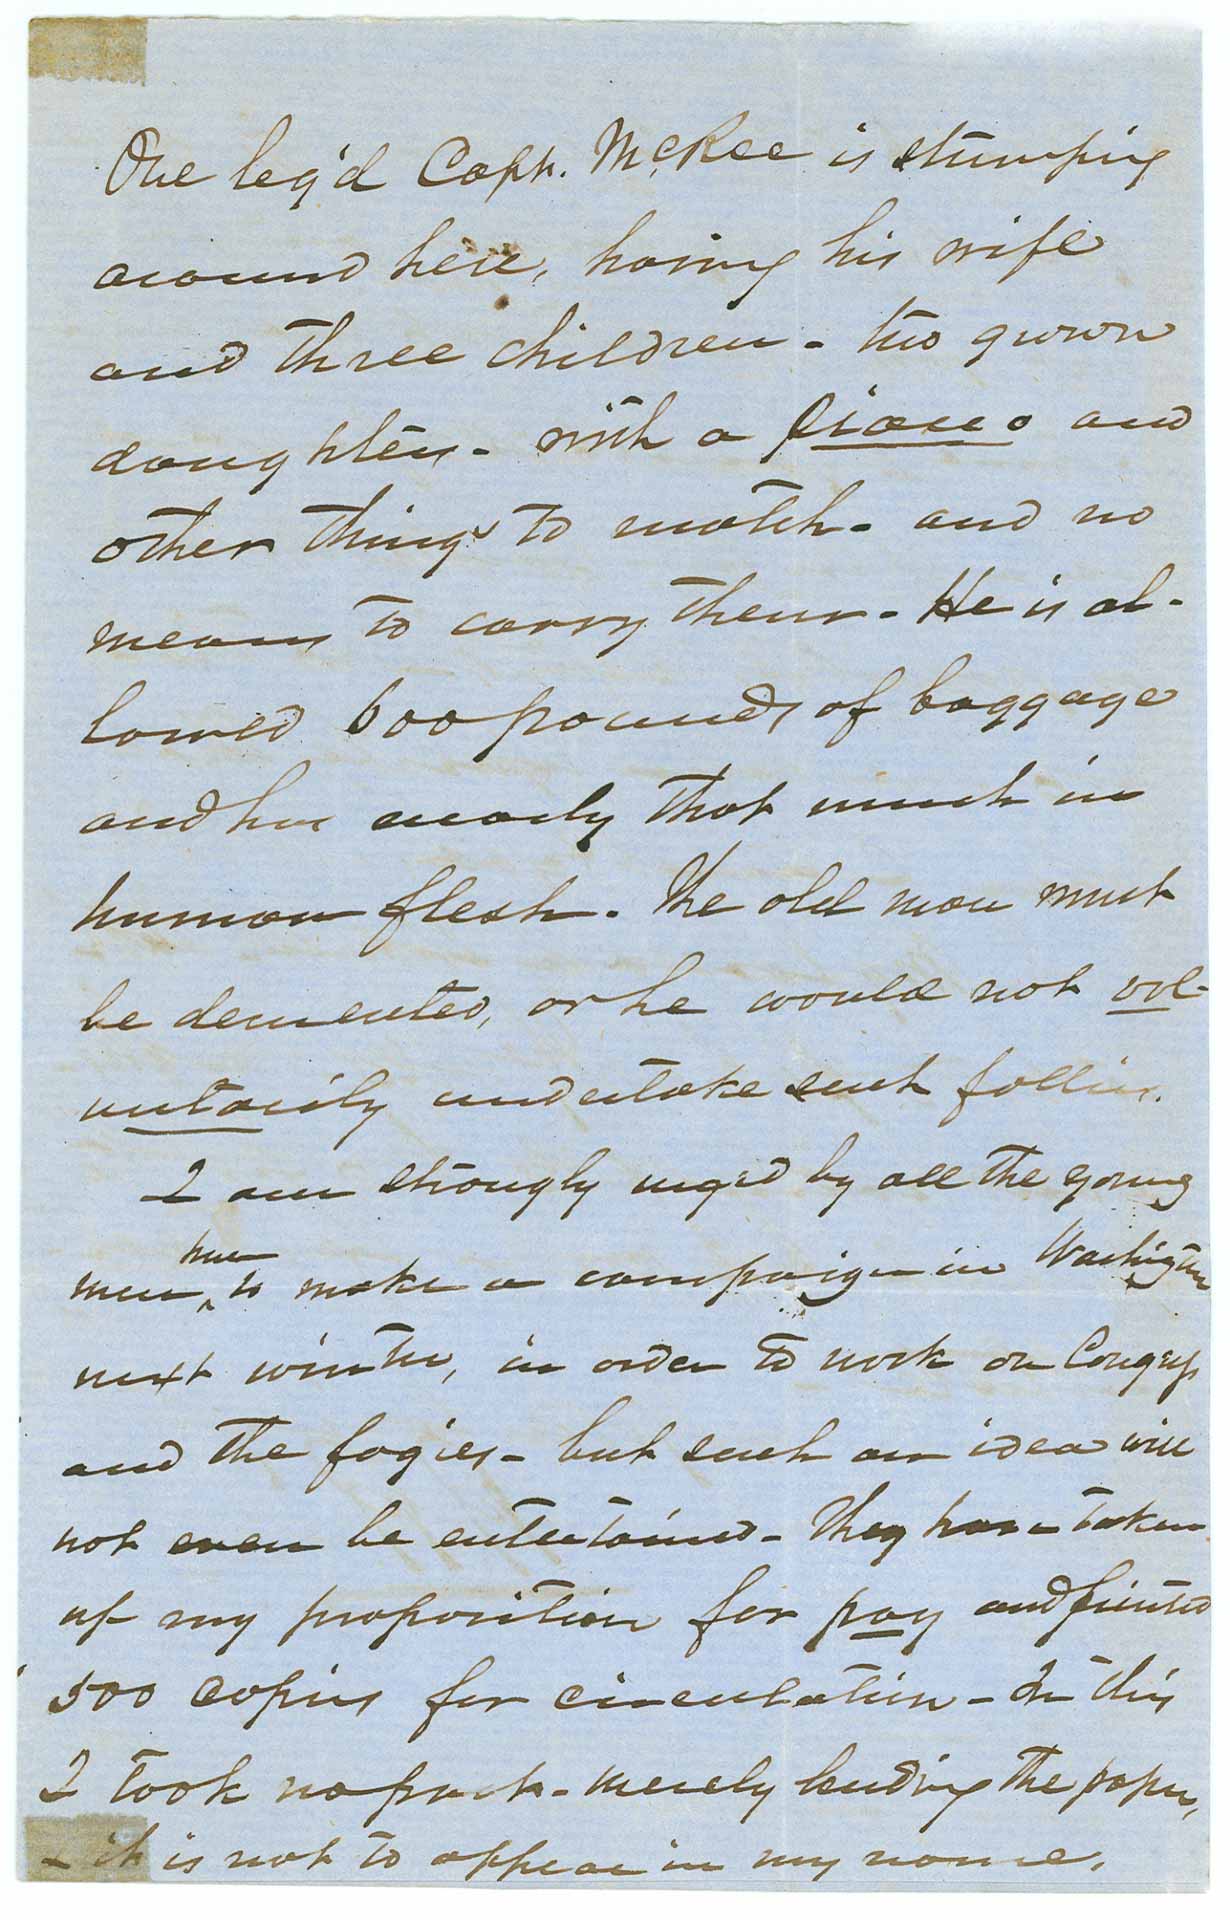 One leg'd Capt. McRee is stumping
around here, having his wife
and three children - two grown
daughters - with a piano and
other things to match - and no
means to carry them - He is al-
lowed 600 pounds of baggage
and has nearly that much in
human flesh. The old man must
be demented, or he would not vol-
untarily undertake such follies.
I am strongly urged by all the young
men, here to make a campaign in Washington
next winter, in order to work on Congress
and the fogies - but such an idea will
not even be entertained - They have taken
up my proposition for pay and printed
500 copies for circulation - In this
I took no part - merely lending the paper,
- it is not to appear in my name.